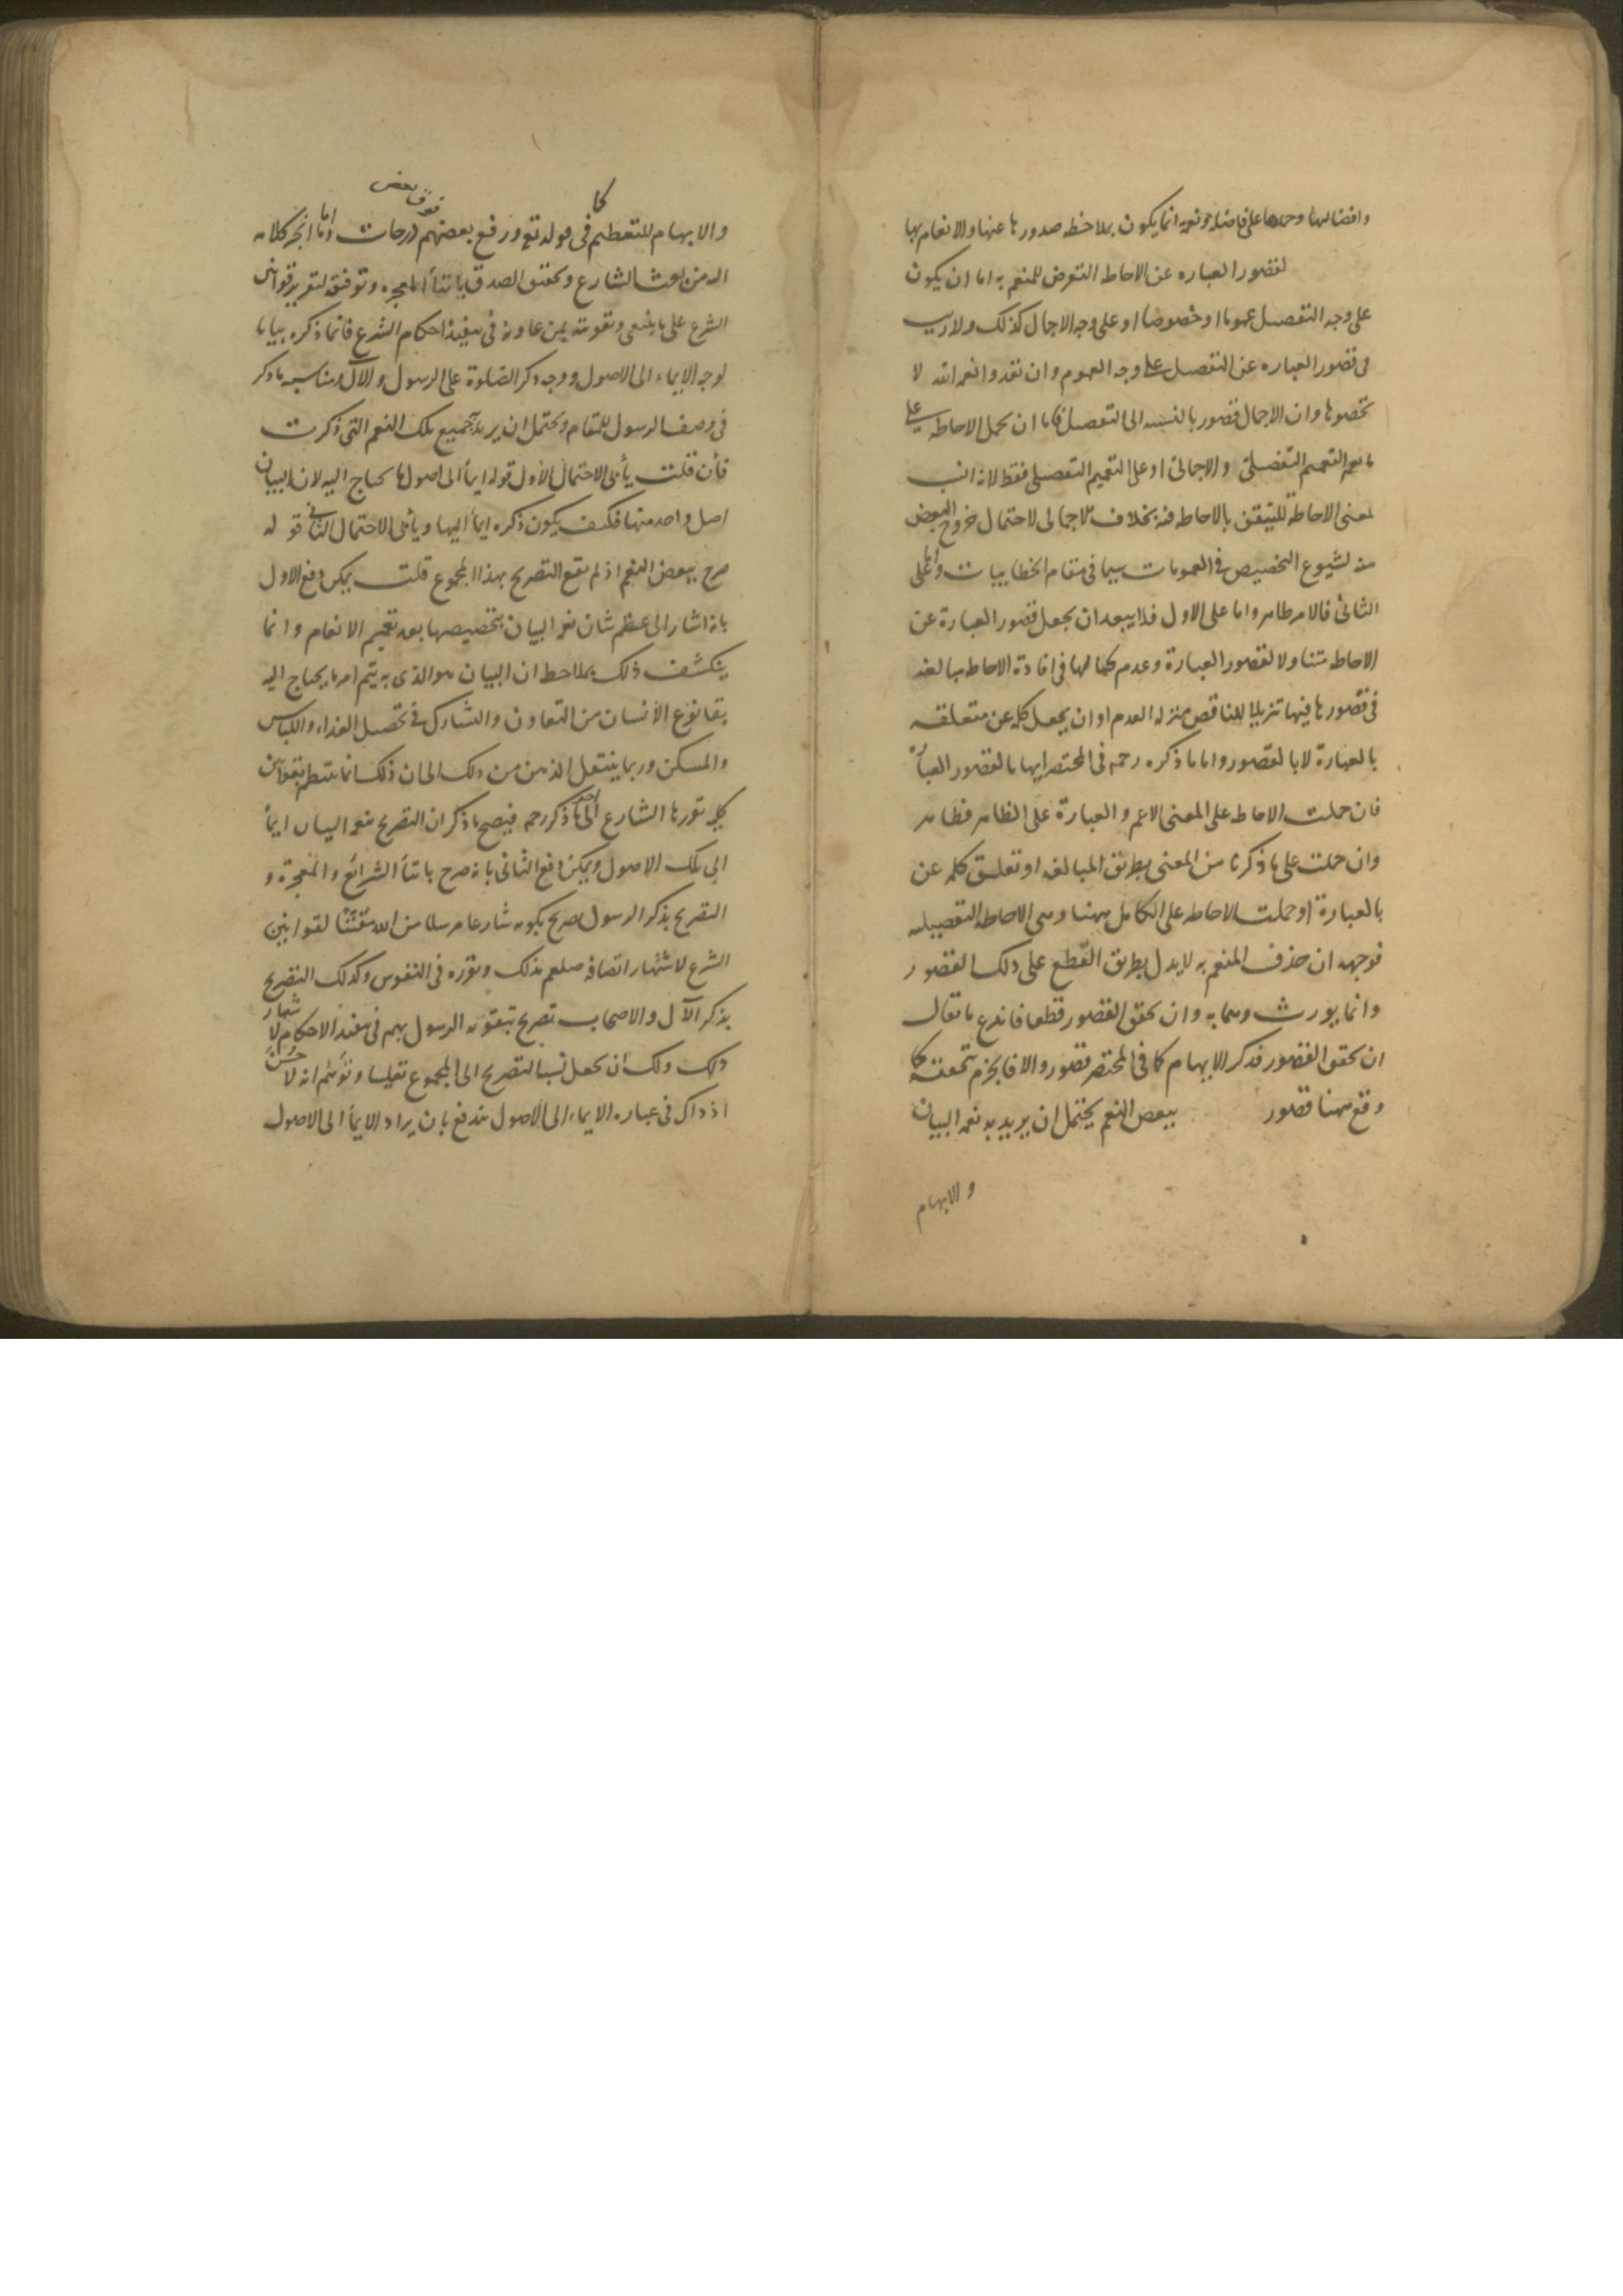 وافضالها وحمدها على فاضل نعمه انما يكون بملاحظة صدورها عنها والانعام بها
لقصور العباره عن الاحاطه التعرض للمنعم به اما ان يكون
على وجه التفصيل عموما او خصوصا او على وجه الاجمال كذلك ولا ريب
فى قصور العباره عن التفصيل على وجه العموم وان تعدوا نعمة الله لا
تحصوها وان الاجمال قصور بالنسبه الى التفصيل فاما ان يحمل الاحاطه على
ما يعم التعميم التفصيلى والاجمالى او على التعميم التفصيلى فقط لانه انسب
لمعنى الاحاطه للتيقن بالاحاطه فيه بخلاف الاجمالى لاحتمال خروج البعض
منه لشيوع التخصيص فى العمومات سيما فى مقام الخطابيات واما على
الثانى فالامر ظاهر واما على الاول فلا يبعد ان يجعل قصور العبارة عن
الاحاطه متناولا لقصور العبارة وعدم كمالها فى افادة الاحاطه مبالغه
فى قصورها فيها تنزيلا للناقص منزله العدم او ان يجعل كلمه عن متعلقه
بالعبارة لا بالقصور واما ما ذكره رحمه فى المختصر ايهاما لقصور العبارة
فان حملت الاحاطه على المعنى الاعم والعبارة على الظاهر فظاهر
وان حملت على ما ذكرنا من المعنى بطريق المبالغه او تعلق كلمه عن
بالعبارة او حملت الاحاطه على الكامل ههنا وهى الاحاطه التفصيليه
فوجهه ان حذف المنعم به لا يدل بطريق القطع على ذلك القصور
وانما يورث وهما به وان تحقق القصور قطعا فاندفع ما يقال
ان تحقق القصور فذكر الايهام كما فى المختصر قصور والا فالجزم بتحققه كما
وقع ههنا قصور ببعض النعم يحتمل ان يريد به نعمه البيان
والابهام
والابهام للتعظيم كما فى قوله تع ورفع بعضهم فوق بعض درجات واما انجر كلامه
الى من بعث الشارع وتحقق الصدق باتنا المعجزه وتوفيقه لتقرير قوانين
الشرع على ما ينبغى وتقويته بمن عاونه فى تنفيذ احكام الشرع فانما ذكره بيانا
لوجه الايماء الى الاصول ووجه ذكر الصلوة على الرسول والآل ومناسبه ما ذكر
فى وصف الرسول للمقام ويحتمل ان يريد جميع تلك النعم التى ذكرت
فأن قلت يأبى الاحتمال الاول قوله ايمأ الى اصول ما يحتاج اليه لان البيان
اصل واحد منها فكيف يكون ذكره ايمأ اليها ويأبى الاحتمال الثانى قوله
صرح ببعض النعم اذ لم يقع التصريح بهذا المجموع قلت يمكن دفع الاول
بانه اشار الى عظم شان نعمه البيان بتخصيصها بعد تعميم الانعام وانما
ينكشف ذلك بملاحظه ان البيان هو الذى به يتم امر ما يحتاج اليه
بقا نوع الأنسان من التعاون والتشارك فى تحصيل الغذاء واللباس
والمسكن وربما ينتقل الذهن من ذلك الى ان ذلك انما ينتظم بقوانين
كليه قررها الشارع الى آخر ما ذكر رحمه فيصح ما ذكر ان التصريح بنعمه البيان ايمأ
الى تلك الاصول ويمكن دفع الثانى بانه صرح باتنأ الشرائع والمعجزة و
التصريح بذكر الرسول صريح بكونه شارعا مرسلا من الله مقنّنًا لقوانين
الشرع لاشتهار اتصافه صلعم بذلك وتقرره فى النفوس وكذلك التصريح
بذكر الآل والاصحاب تصريح بتقويه الرسول بهم فى تنفيذ الاحكام لاشتهار
ذلك ولك ان تجعل نسبه التصريح الى المجموع تغليبا وتوهم انه لا حسن
اذ ذاك فى عباره الايماء الى الاصول يندفع بان يراد الايمأ الى الاصول